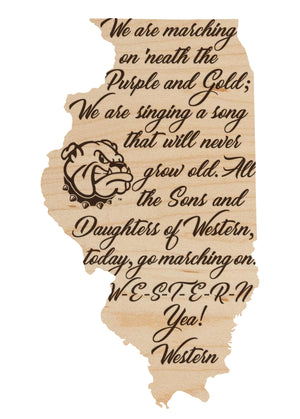 We are marching
on 'neath the
Purple and Gold;
We are singing a song
that will never
grow old. All
the Sons and
Daughters of Western,
today, go marching on.
W-E-S-T-E-R-N
Yea!
Western